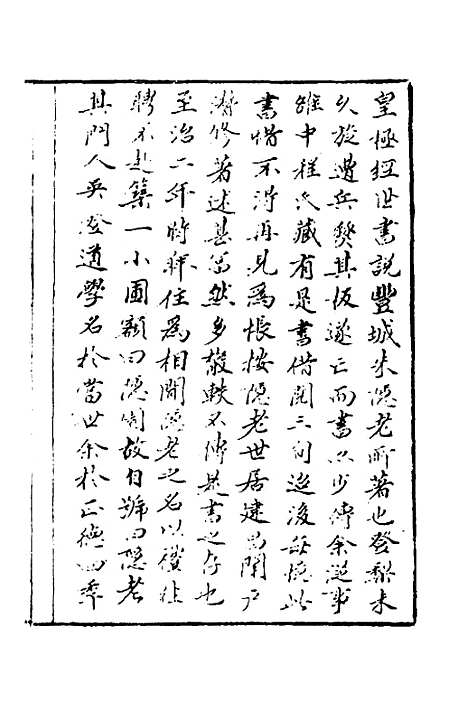 皇極經世書說豐城朱隱老所著也登梨未
久旋遭兵燹其板遂亡而書亦少傳余從事
雒中程氏藏有是書借閱三旬迨後每憶此
書惜不得再見為悵按隱老世居建昌閉戶
潛修著述甚富然多散軼不傳是書之存也
至治二年時拜住為相聞隱老之名以禮徃
聘不起築一小圃顏曰隱圃故自號曰隱老
其門人吳澄道學名於當世余於正德四年